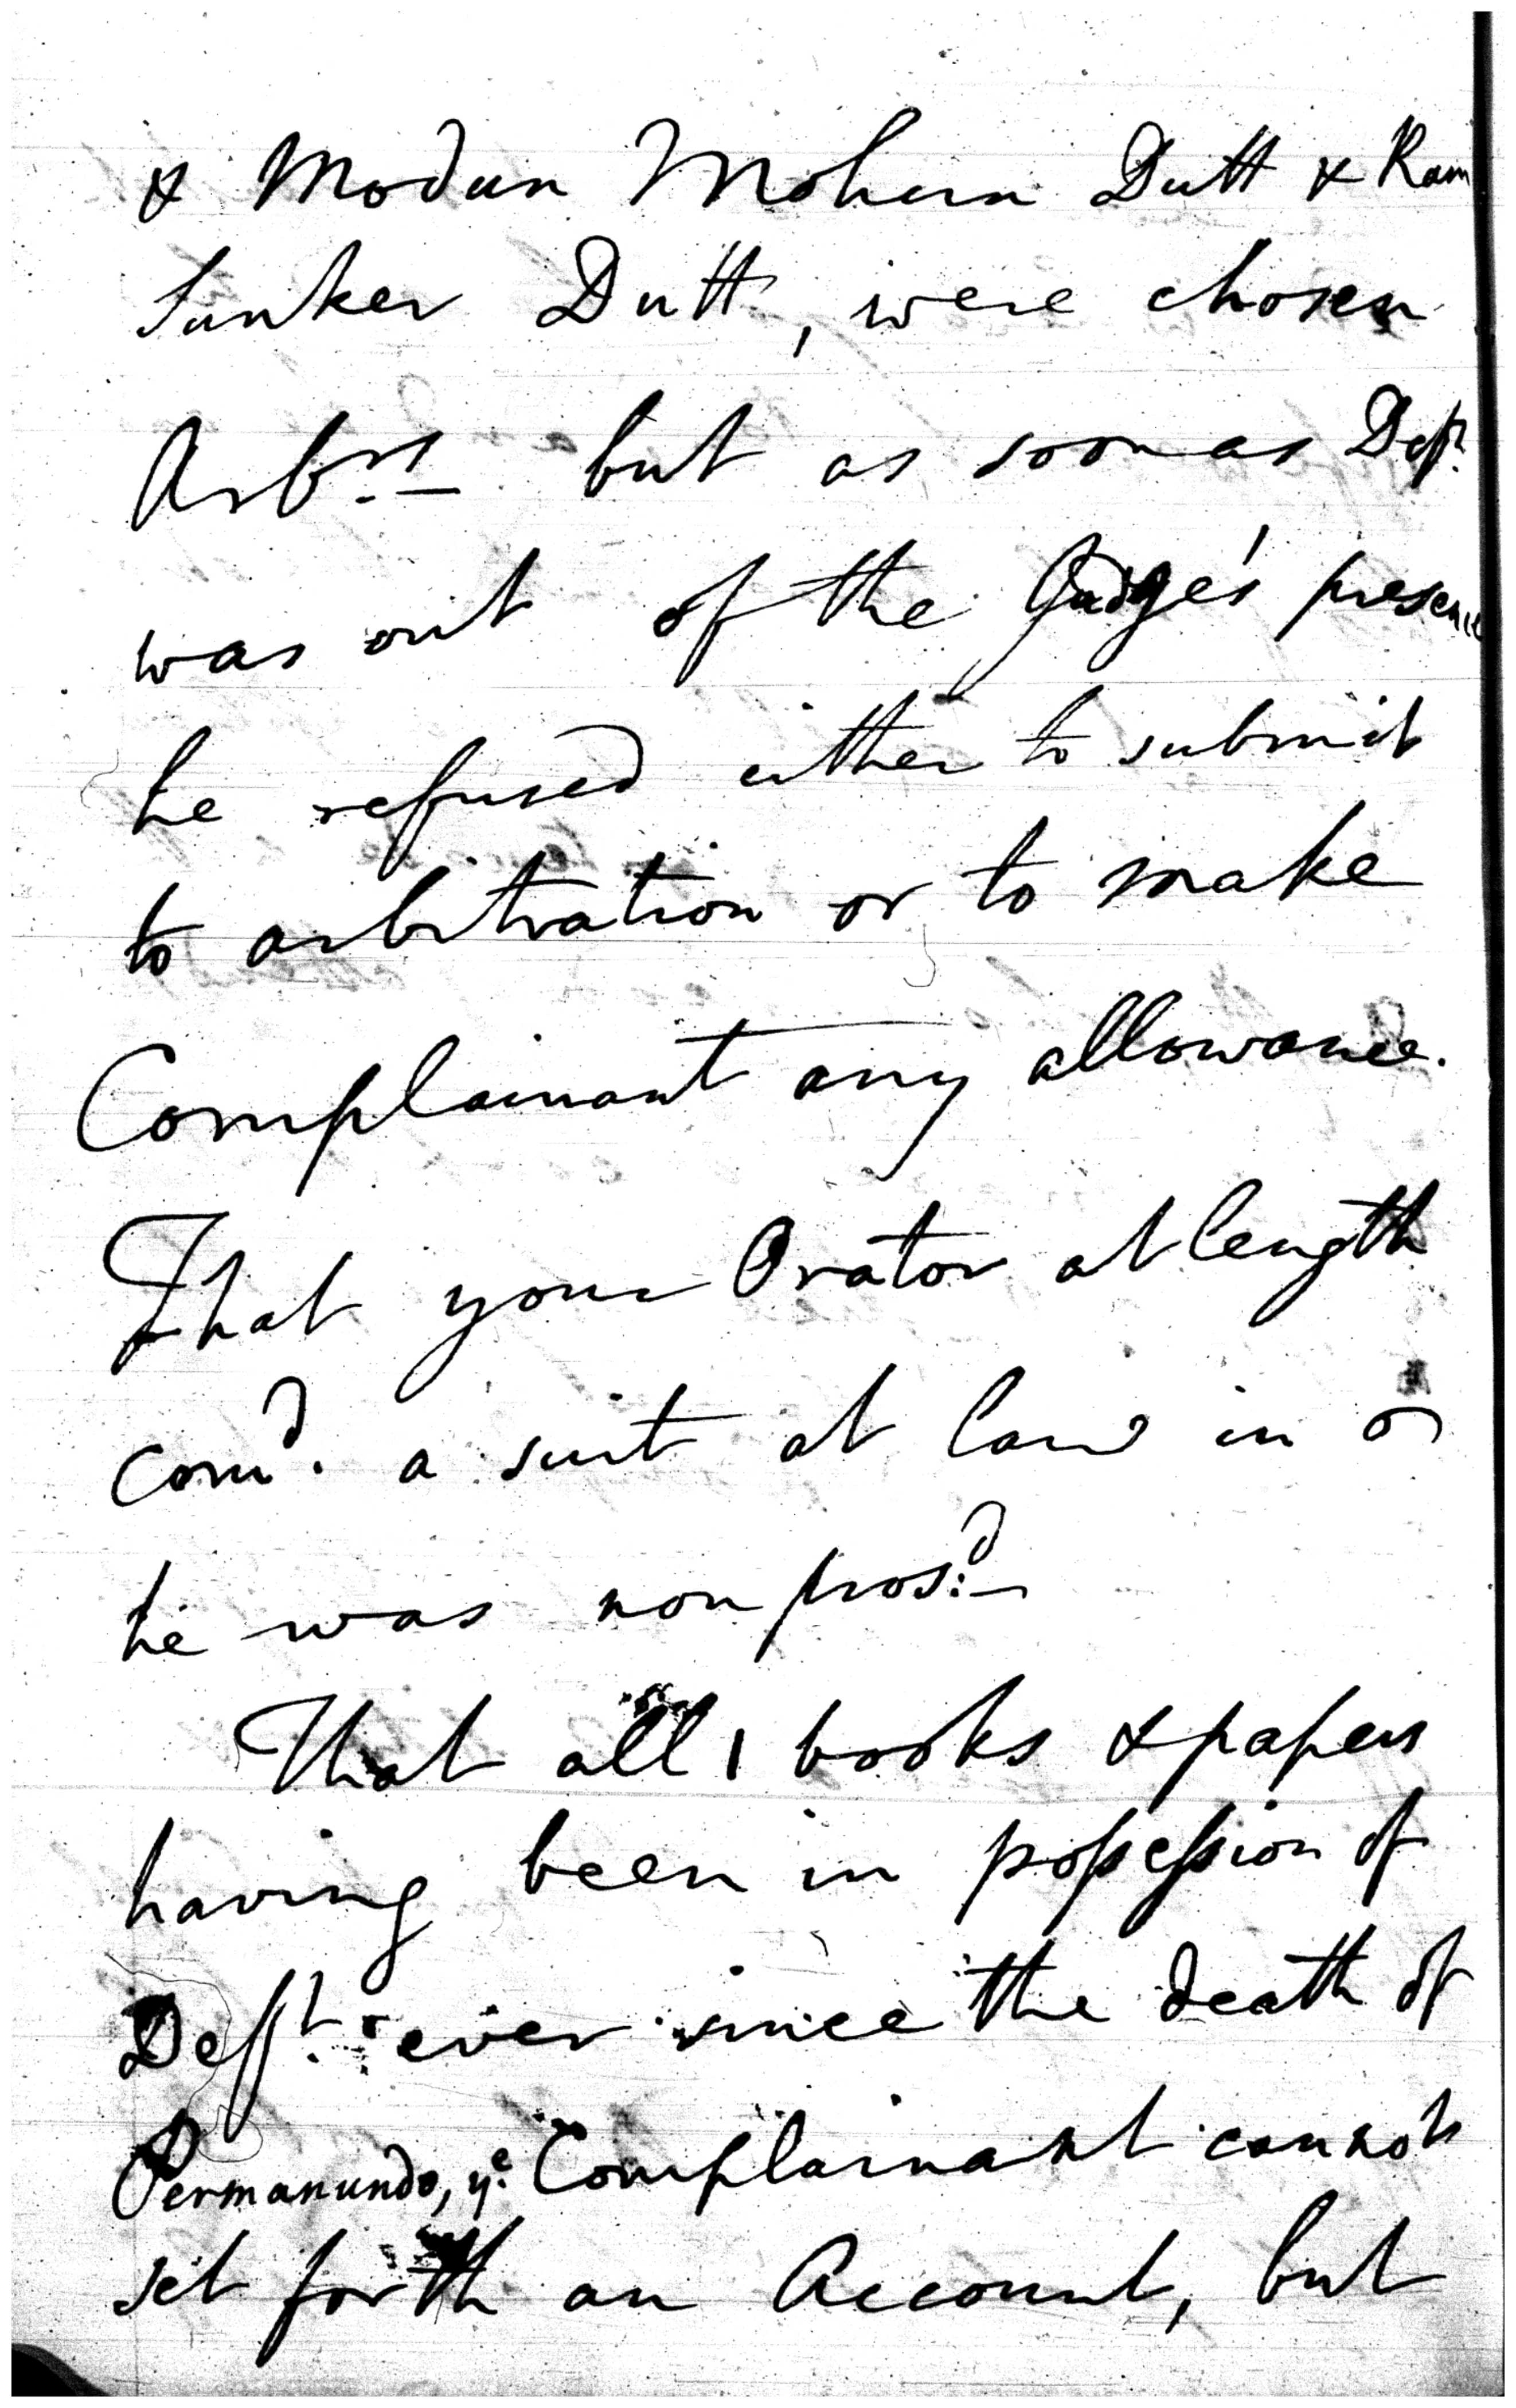 & Modun Mohun Dutt & Ram
Sunker Dutt, were chosen
Arbrs. but as soon as Deft.
was out of the Judge's presence
he refused either to submit
to arbitration or to make
Complainant any allowance.
That your Orator at length
comd. a suit at law in
he was nonprosd.
That all books & papers
having been in possession of
Deft. ever since the death of
Permanundo, ye. Complainant cannot
set forth an Account, but